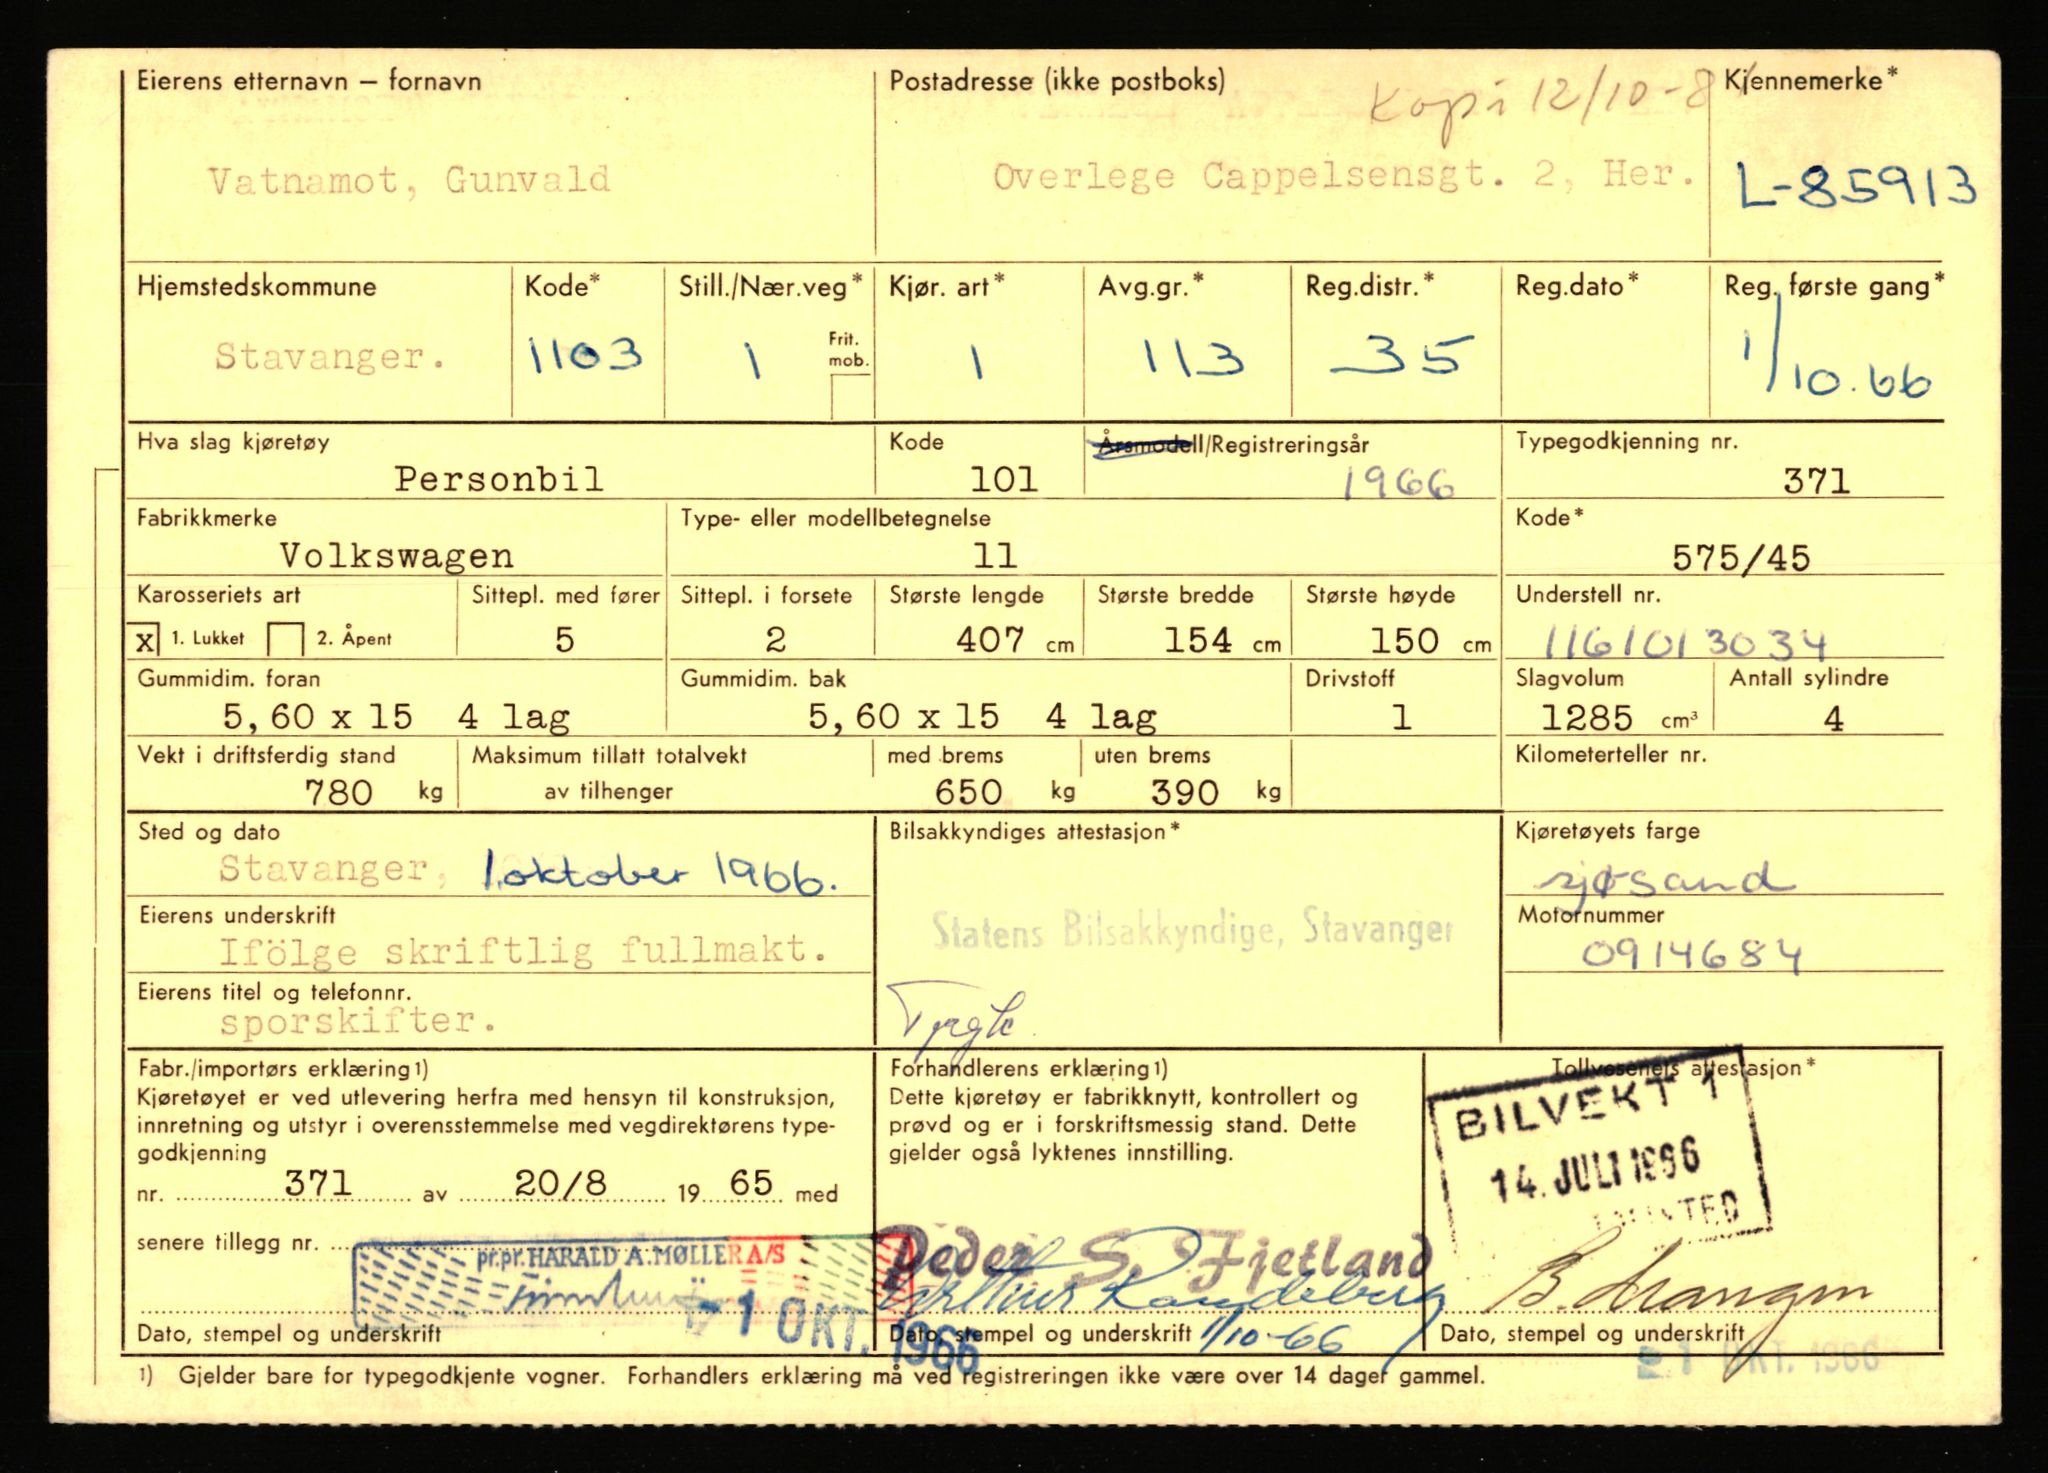 Eierens etternavn – fornavn
Postadresse (ikke postboks)
Kopi 12/10-8
Kjennemerke*
Vatnamot, Gunvald
Overlege Cappelsensgt. 2, Her.
L-85913
Hjemstedskommune
Kode*
Still./Nær.veg*
Kjør. art*
Avg.gr.*
Reg.distr.*
Reg.dato*
Reg. første gang*
Stavanger.
1103
1
Frit. mob.
1
113
35
1/10.66
Hva slag kjøretøy
Kode
Årsmodell/Registreringsår
Typegodkjenning nr.
Personbil
101
1966
371
Fabrikkmerke
Type- eller modellbetegnelse
Kode*
Volkswagen
11
575/45
Karosseriets art
Sittepl. med fører
Sittepl. i forsete
Største lengde
Største bredde
Største høyde
Understell nr.
x 1. Lukket 2. Åpent
5
2
407 cm
154 cm
150 cm
1161013034
Gummidim. foran
Gummidim. bak
Drivstoff
Slagvolum
Antall sylindre
5,60 x 15 4 lag
5,60 x 15 4 lag
1
1285 cm³
4
Vekt i driftsferdig stand
Maksimum tillatt totalvekt
med brems
uten brems
Kilometerteller nr.
780 kg
av tilhenger
650 kg
390 kg
Sted og dato
Bilsakkyndiges attestasjon*
Kjøretøyets farge
Stavanger, 1.oktober 1966.
sjøsand
Eierens underskrift
Statens Bilsakkyndige, Stavanger
Motornummer
Ifölge skriftlig fullmakt.
0914684
Eierens titel og telefonnr.
sporskifter.
Fabr./importørs erklæring1)
Forhandlerens erklæring1)
Tollvesenets attestasjon*
Kjøretøyet er ved utlevering herfra med hensyn til konstruksjon,
innretning og utstyr i overensstemmelse med vegdirektørens type-
godkjenning
nr. 371 av 20/8 1965 med
senere tillegg nr.
Dette kjøretøy er fabrikknytt, kontrollert og
prøvd og er i forskriftsmessig stand. Dette
gjelder også lyktenes innstilling.
BILVEKT 1
14. JULI 1966
pr.pr. HARALD A. MØLLER A/S
-1 OKT. 1966
Peder S. Fjetland
1/10-66
Dato, stempel og underskrift
Dato, stempel og underskrift
Dato, stempel og underskrift
OKT. 1966
1) Gjelder bare for typegodkjente vogner. Forhandlers erklæring må ved registreringen ikke være over 14 dager gammel.